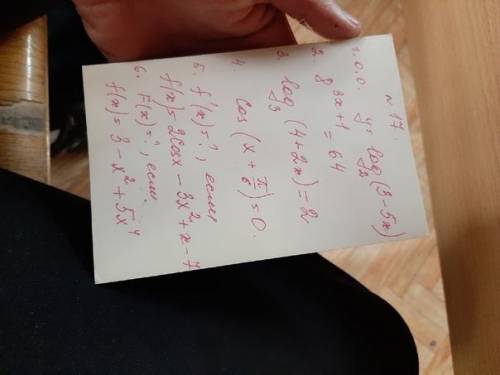 № 17.
1. О.О. y = log₂(3-5x)
2. 8^{3x+1} = 64
3. log₃(4+2x) = 2
4. cos(x + π/6) = 0.
5. f'(x) = ?, если
f(x) = 2cosx - 3x² + x - 7
6. F(x) = ?, если
f(x) = 3 - x² + 5x⁴